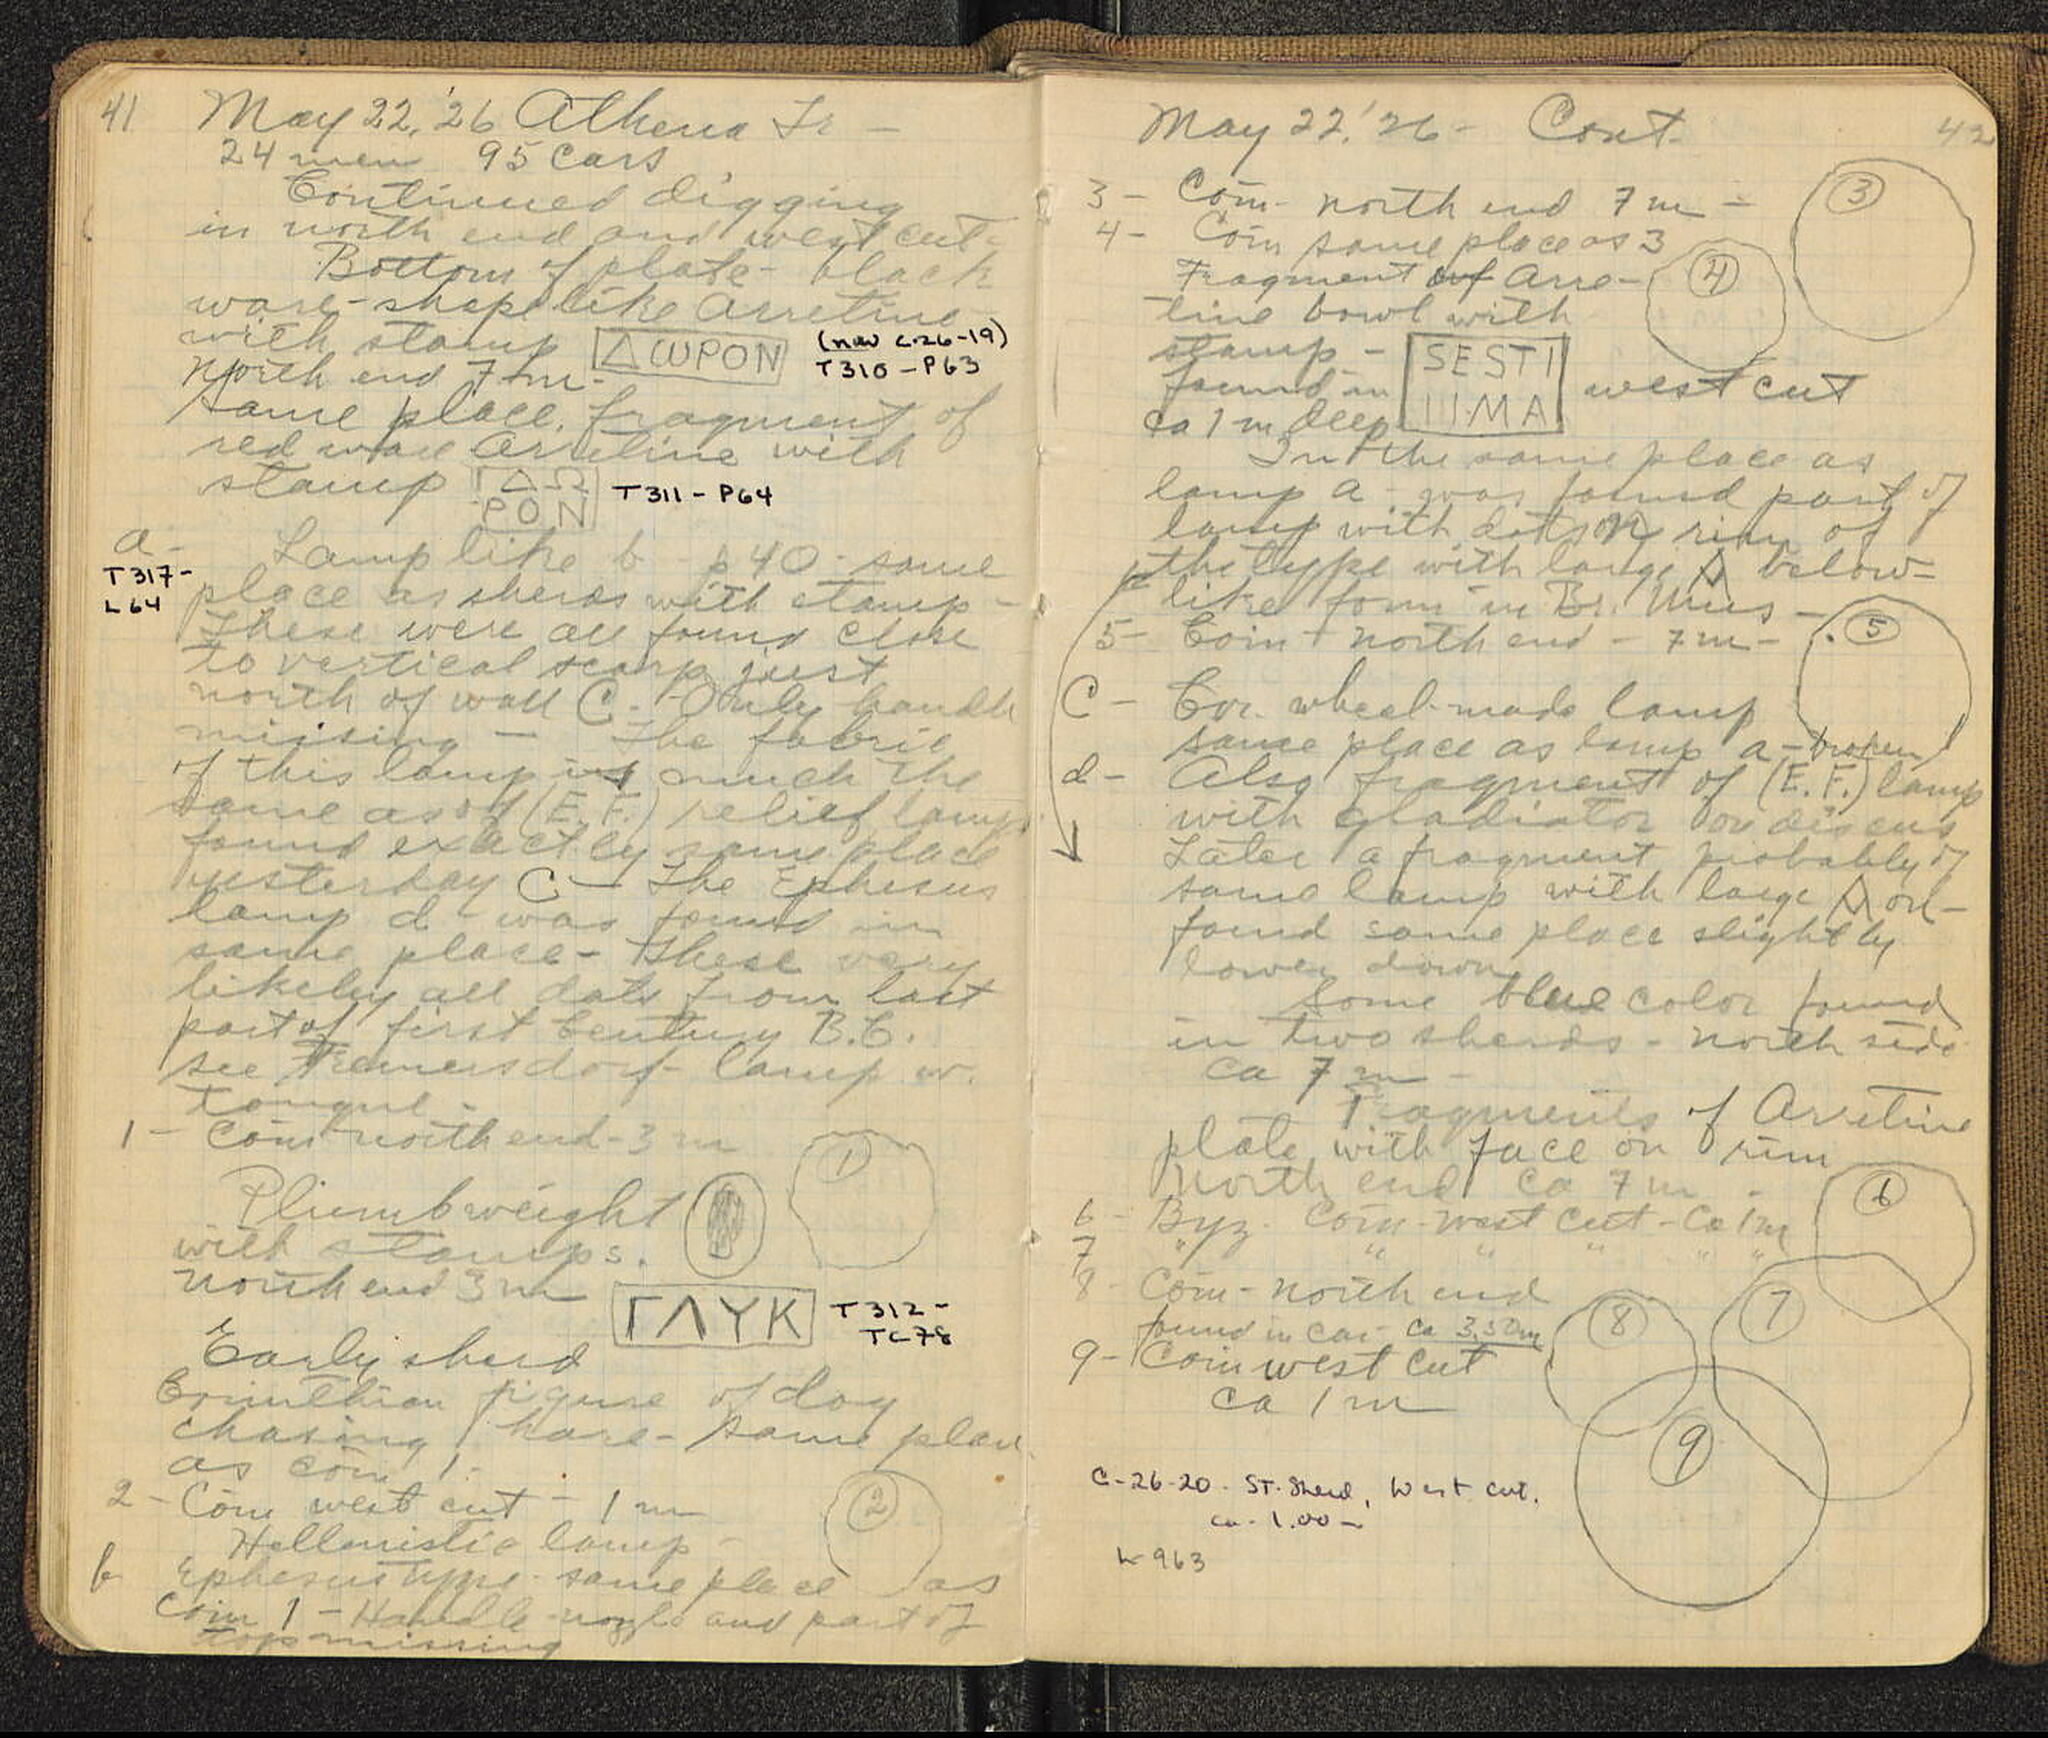 41 May 22, '26 Athena Tr —
24 men 95 cars
Continued digging
in north end and west cut -
Bottom of plate - black
ware - shape like Arretine
with stamp ΔωΡΟΝ (now C-26-19)
T310 - P63
North end 7 m -
Same place, fragment of
red ware Arretine with
stamp ΓΔΩ
ΡΟΝ T311 - P64
a - Lamp like b - p 40 - same
T317 -
L64
place as sherds with stamp -
These were all found close
to vertical scarp just
north of wall C - Only handle
missing — The fabric
of this lamp is much the
same as of (E. F.) relief lamp
found exactly same place
yesterday C — The Ephesus
lamp d - was found in
same place - These very
likeley all date from last
part of first Century B.C.
see Fremersdorf - lamp w.
tongue -
1 - Coin north end - 3 m
1
Plumb weight
with stamps.
north end 3 m
ΓΛΥΚ T 312 -
TC 78
Early sherd
Corinthian figure of dog
chasing hare - same place
as coin 1 -
2 - Coin west cut - 1 m
2
Hellenistic lamp -
b Ephesus type - same place as
coin 1 - Handle - nozzle and part of
top missing
May 22, '26 - Cont. 42
3 - Coin - north end 7 m -
3
4 - Coin same place as 3
4
Fragment of Arre-
tine bowl with
stamp - SESTI
IIMA
found in west cut
ca 1 m deep
In the same place as
lamp a - was found part of
lamp with dots on rim of
the type with large Δ below -
like form in Br. Mus -
5 - Coin - north end - 7 m -
5
C - Cor. wheel-made lamp
same place as lamp a - broken
d - Also fragment of (E. F.) lamp
with gladiator on discus
Later a fragment probably of
same lamp with large Δ on -
found same place slightly
lower down
Some blue color found
in two sherds - north side
ca 7 m -
Fragments of Arretine
plate with face on rim
North end ca 7 m -
6 - Byz. Coin - west cut - ca 1 m
6
7 " " " " " "
7
8 - Coin - north end
found in car - ca 3.50m
8
9 - Coin west cut
ca 1 m
9
C-26-20 - ST. Sherd, West cut.
ca. 1.00 -
L-963